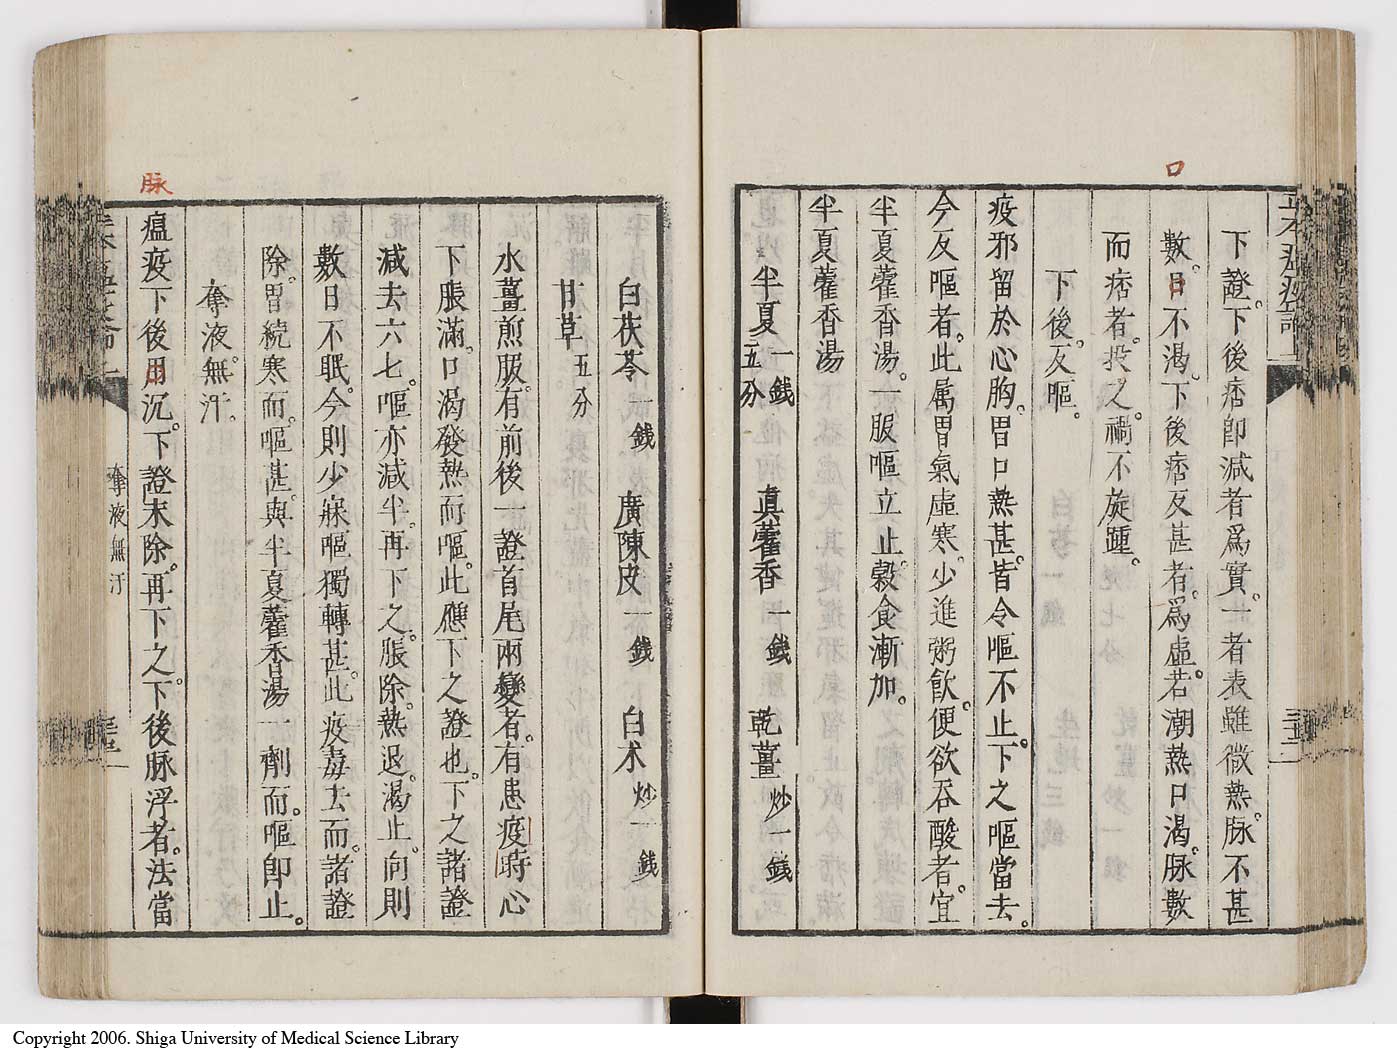 口
下證。下後痞卽減者爲實。一者表雖微熱。脉不甚
數。口不渴。下後痞反甚者。爲虛。若潮熱口渴。脉數
而痞者。投之。禍不旋踵。
下後。反嘔。
疫邪留於心胸。胃口熱甚。皆令嘔不止。下之嘔當去。
今反嘔者。此属胃氣虛寒。少進粥飮。便欲吞酸者。宜
半夏藿香湯。一服嘔立止。穀食漸加。
半夏藿香湯
半夏 一錢五分 真藿香 一錢 乾薑 炒一錢
白茯苓 一錢 廣陳皮 一錢 白朮 炒一錢
甘草 五分
水薑煎服。有前後一證首尾兩變者。有患疫時心
下脹滿。口渴發熱而嘔。此應下之證也。下之諸證
減去六七。嘔亦減半。再下之。脹除。熱退。渴止。向則
數日不眠。今則少寐。嘔獨轉甚。此疫毒去而。諸證
除。胃続寒而。嘔甚。與半夏藿香湯一劑而。嘔卽止。
奪液無汗。
脉
瘟疫下後脉沉。下證未除。再下之。下後脉浮者。法當
奪液無汗